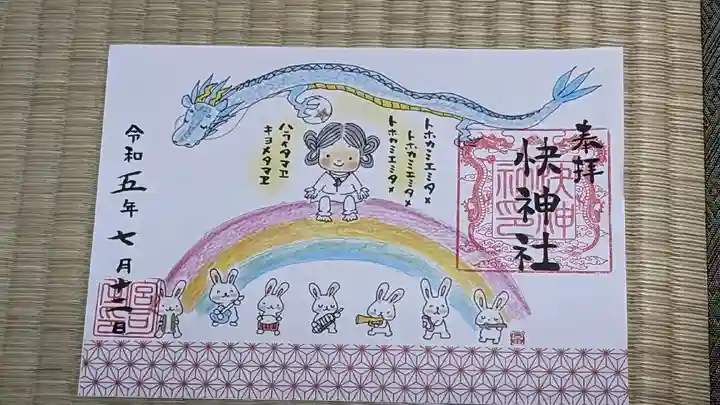 奉拝
快神社
トホカミエミタメ
トホカミエミタメ
トホカミエミタメ
ハライタマエ
キヨメタマエ
令和五年七月十二日